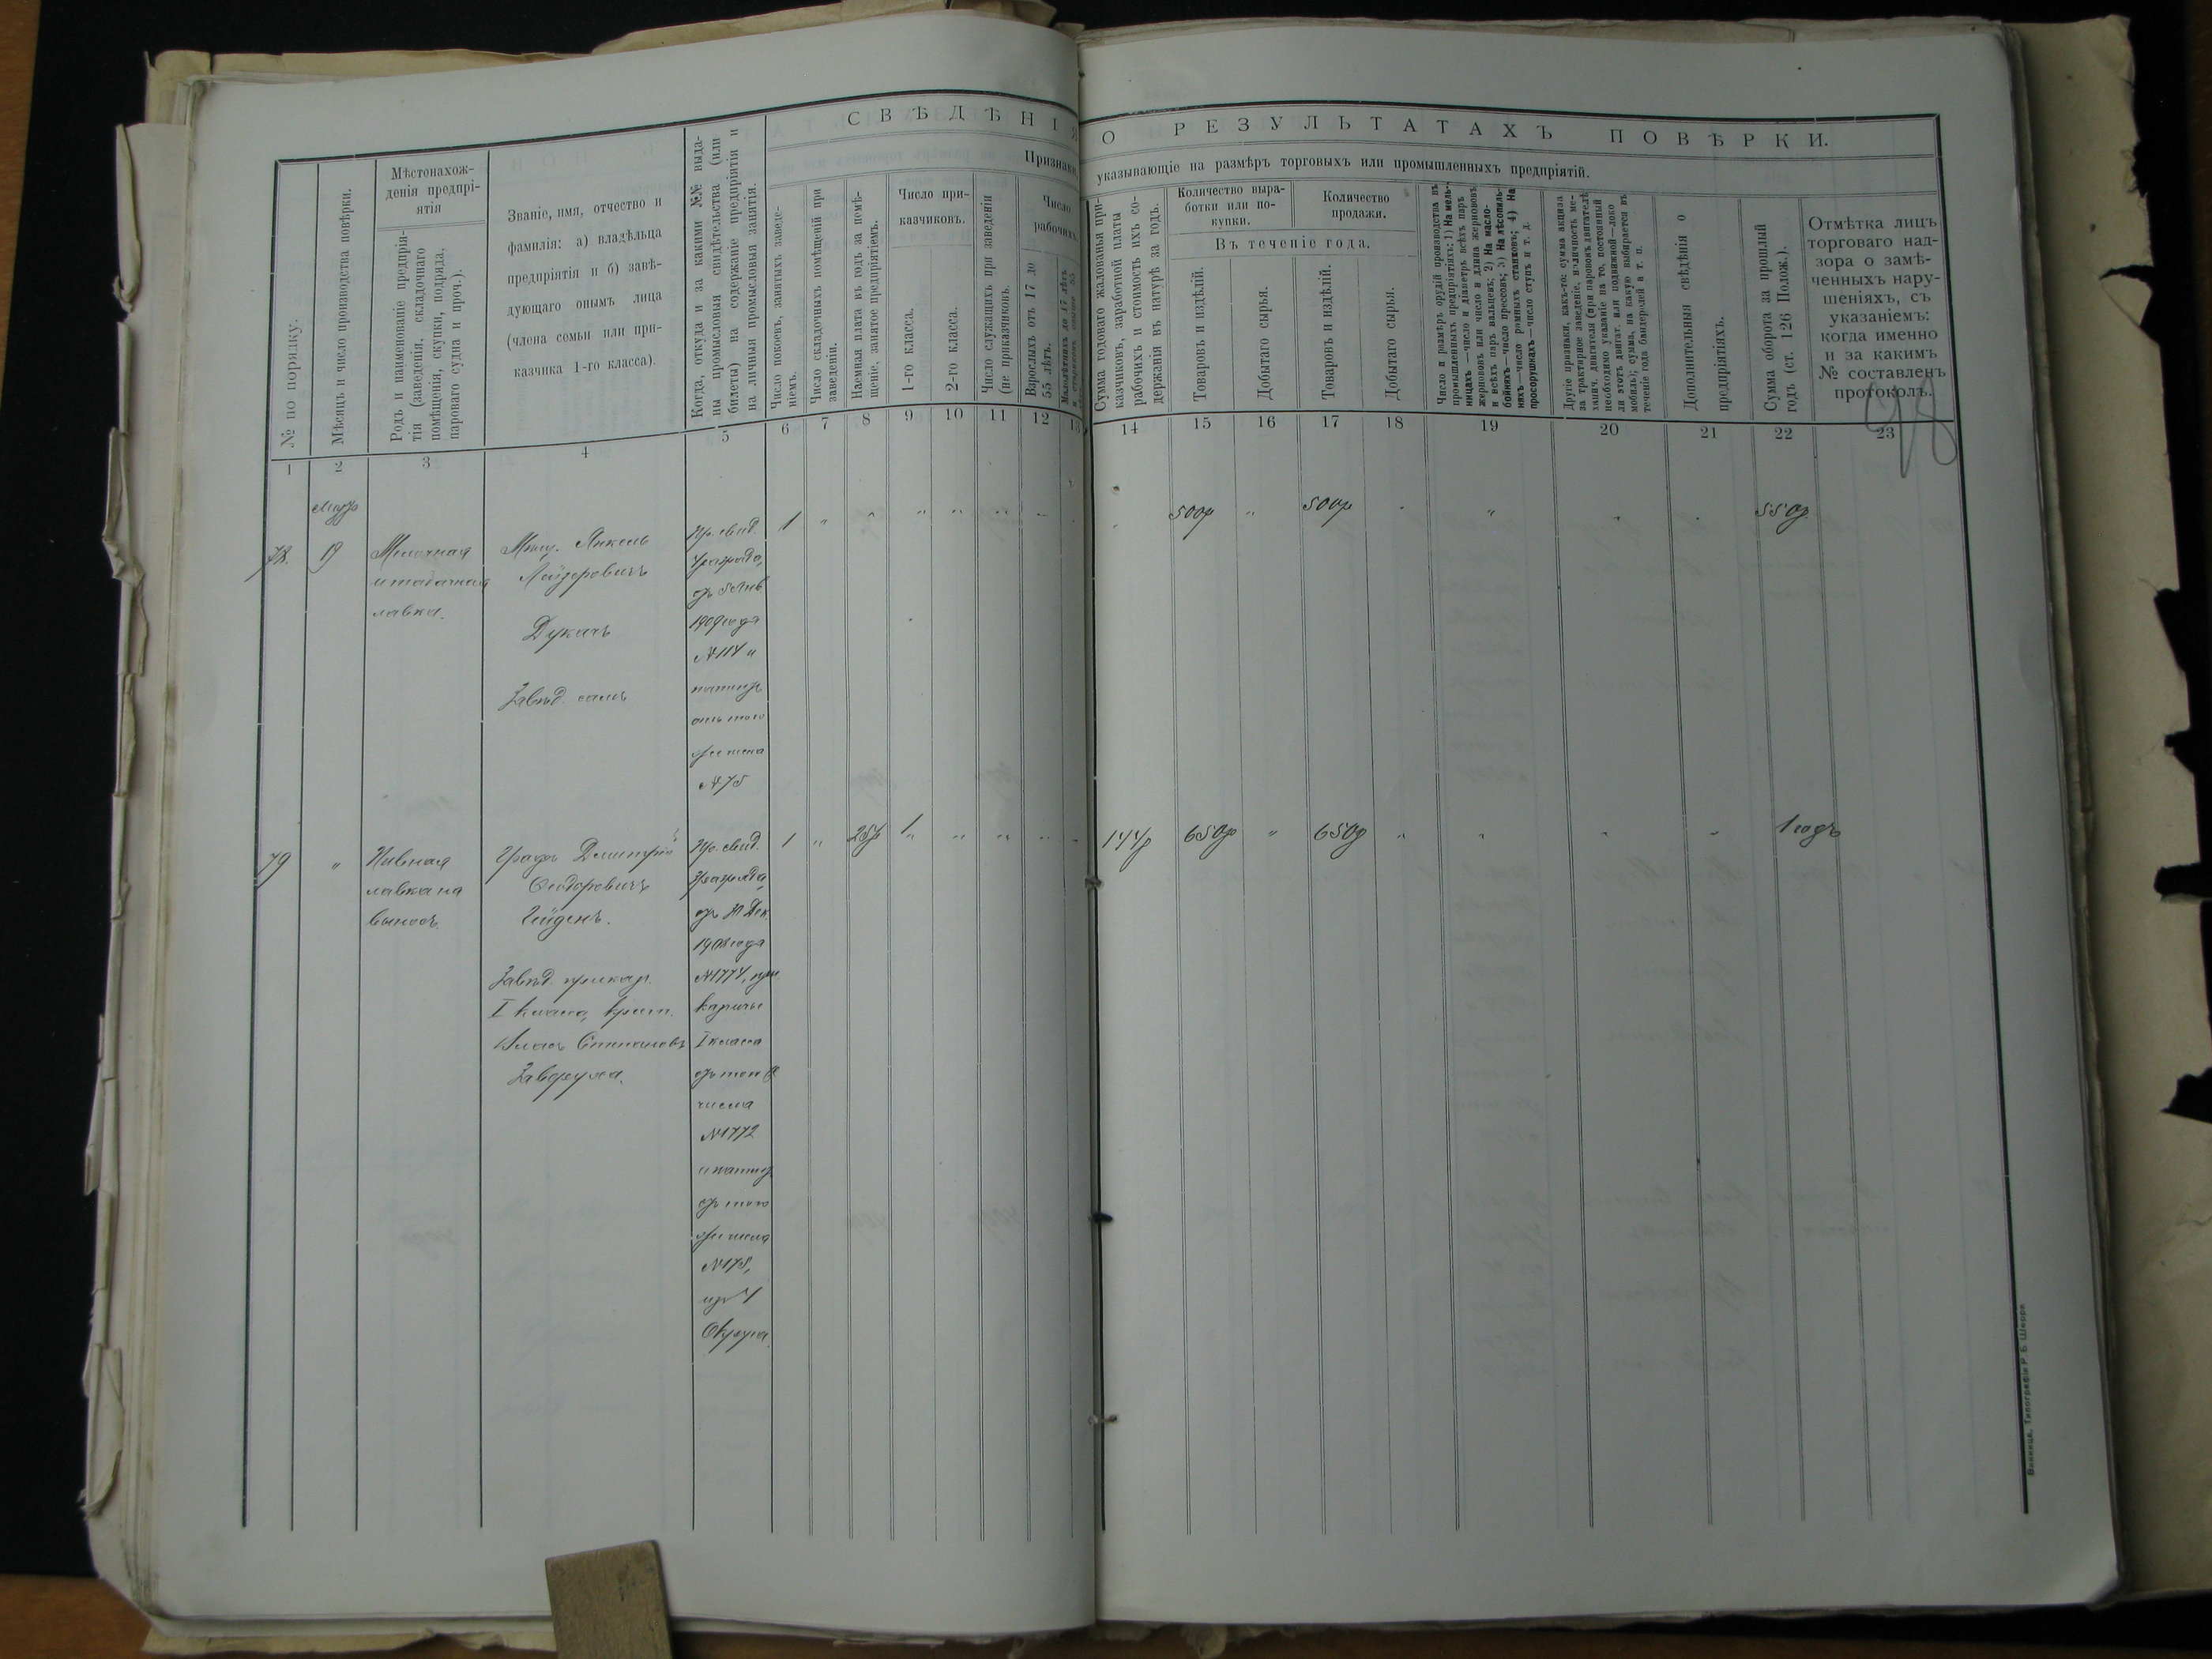 СВѢДѢНІЯ О РЕЗУЛЬТАТАХЪ ПОВѢРКИ.
Признаки, указывающіе на размѣръ торговыхъ или промышленныхъ предпріятій.
№ по порядку.
Мѣсяцъ и число производства повѣрки.
Мѣстонахож-
денія предпрі-
ятія
Родъ и наименованіе предпрія-
тія (заведенія, складочнаго
помѣщенія, скупки, подряда,
пароваго судна и проч.).
Званіе, имя, отчество и
фамилія: а) владѣльца
предпріятія и б) завѣ-
дующаго онымъ лица
(члена семьи или при-
казчика 1-го класса).
Когда, откуда и за какими №№ выда-
ны промысловыя свидѣтельства (или
билеты) на содержаніе предпріятія и
на личныя промысловыя занятія.
Число покоевъ, занятыхъ заведе-
ніемъ.
Число складочныхъ помѣщеній при
заведеніи.
Наемная плата въ годъ за помѣ-
щеніе, занятое предпріятіемъ.
Число при-
казчиковъ.
1-го класса.
2-го класса.
Число служащихъ при заведеніи
(не приказчиковъ).
Число
рабочихъ.
Взрослыхъ отъ 17 до
55 лѣтъ.
Малолѣтнихъ до 17 лѣтъ
Сумма годоваго жалованья при-
казчиковъ, заработной платы
рабочихъ и стоимость ихъ со-
держанія въ натурѣ за годъ.
Количество выра-
ботки или по-
купки.
Количество
продажи.
Въ теченіе года.
Товаровъ и издѣлій.
Добытаго сырья.
Товаровъ и издѣлій.
Добытаго сырья.
Число и размѣръ орудій производства въ
промышленныхъ предпріятіяхъ: 1) На мель-
ницахъ—число и діаметръ всѣхъ паръ
жернововъ или число и длина жернововъ
и всѣхъ паръ вальцевъ; 2) На масло-
бойняхъ—число прессовъ; 3) На лѣсопиль-
няхъ—число рамныхъ станковъ; 4) На
просорушкахъ—число ступъ и т. д.
Другіе признаки, какъ-то: сумма акциза
за трактирное заведеніе, наличность ме-
ханич. двигателя (при паровомъ двигателѣ
необходимо указаніе на то, постоянный
ли этотъ двигат. или подвижной—локо
мобиль); сумма, на какую выбирается въ
теченіе года бандеролей и т. п.
Дополнительныя свѣдѣнія о
предпріятіяхъ.
Сумма оборота за прошлый
годъ (ст. 126 Полож.).
Отмѣтка лицъ
торговаго над-
зора о замѣ-
ченныхъ нару-
шеніяхъ, съ
указаніемъ:
когда именно
и за какимъ
№ составленъ
протоколъ.
98
1 2 3 4 5 6 7 8 9 10 11 12 13 14 15 16 17 18 19 20 21 22 23
78. 9
Мелочная
и табачная
лавка.
Мѣщ. Янкель
Лейзеровичъ
Дукачъ
Завѣд. самъ
Пр. свид.
4 разряда,
отъ 5 Янв
1909 года
№ 114 и
патентъ
отъ того
же числа
№ 75
1 " " " " " " 500р " 500р " " 550р
79 "
Пивная
лавка на
выносъ.
Графъ Дмитрій
Ѳеодоровичъ
Гейденъ.
Завѣд. приказ.
I класса, крест.
Власъ Степановъ
Заверуха.
Пр. свид.
3 разряда,
1908 года
№ 1774, при
казчичье
I класса
отъ того
числа
№ 1772
и патент
отъ того
же числа
№ 178,
изъ 4
Округа
1 " 25р 1 " " " 144р 650р " 650р " " " " 1 годъ
Винница, Типографія Р. Б. Шерра